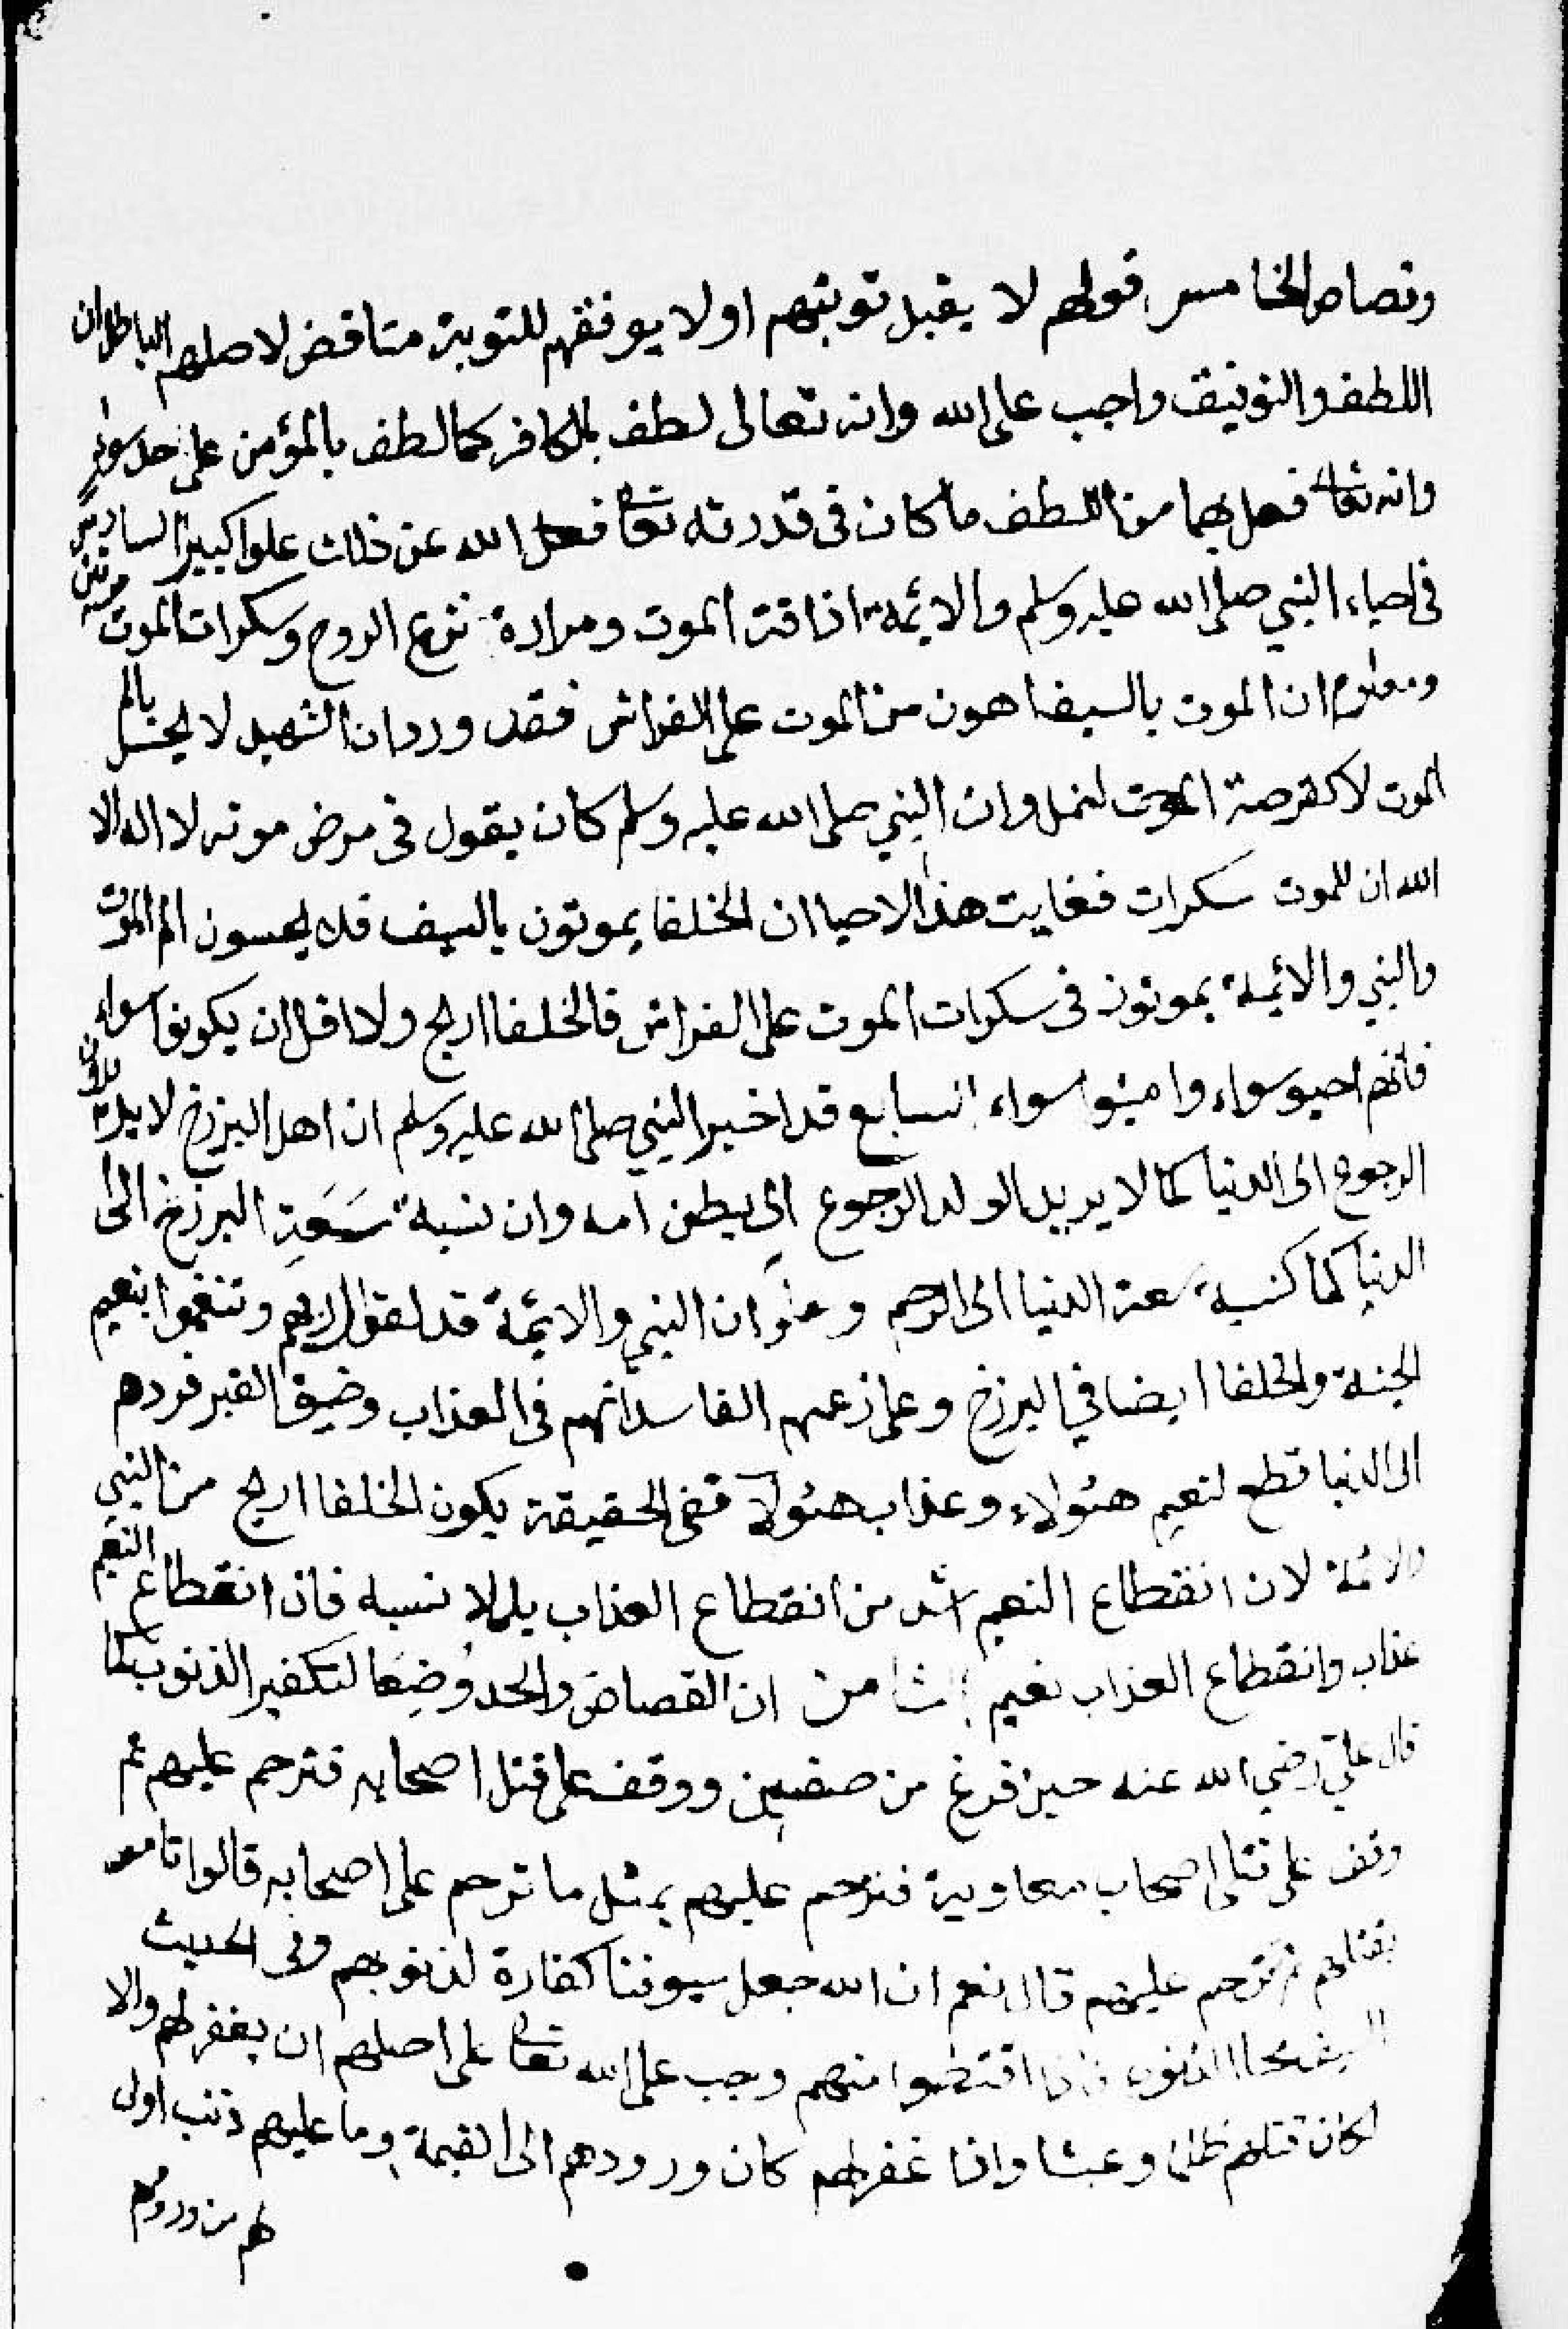 وقصاص الخامس قولهم لا يقبل توبتهم او لا يوفقهم للتوبة مناقض لاصلهم الباطل ان
اللطف والتوفيق واجب على الله وانه تعالى لطف بالكافر كما لطف بالمؤمن على حد سواء
وانه تعالى فعل بهما من اللطف ما كان في قدرته تعالى الله عن ذلك علوا كبيرا السادس
في احياء النبي صلى الله عليه وسلم والائمة اذاقة الموت ومرارة نزع الروح وسكرات الموت مرتين
ومعلوم ان الموت بالسيف اهون من الموت على الفراش فقد ورد ان الشهيد لا يحس بالم
الموت لا كقرصة نمل وان النبي صلى الله عليه وسلم كان يقول في مرض موته لا اله الا
الله ان للموت سكرات فغايت هذا الاحيا ان الخلفا يموتون بالسيف فلا يحسون الم الموت
والنبي والائمة يموتون في سكرات الموت على الفراش فالخلفا اربح ولا اقل ان يكونوا سواء
فانهم احيوا سواء واميتوا سواء السابع قد اخبر النبي صلى الله عليه وسلم ان اهل البرزخ لا يريدون
الرجوع الى الدنيا كما لا يريد الولد الرجوع الى بطن امه وان نسبة سَعَةِ البرزخ الى
الدنيا كما كنسبة سعة الدنيا الى الرحم وعلى ان النبي والائمة قد لقوا ربهم وتنعموا بنعيم
الجنة والخلفا ايضا في البرزخ وعلى زعمهم الفاسد انهم في العذاب وضيق القبر فردهم
الى الدنيا قطع لنعيم هئولاء وعذاب هئولاء ففي الحقيقة يكون الخلفا اربح من النبي
والائمة لان انقطاع النعيم اشد من انقطاع العذاب بل لا نسبة فان انقطاع النعيم
عذاب وانقطاع العذاب نعيم الثامن ان القصاص والحد وُضِعَا لتكفير الذنوب كما
قال علي رضي الله عنه حين فرغ من صفين ووقف على قتلى اصحابه فترحم عليهم ثم
وقف على قتلى اصحاب معاوية فترحم عليهم بمثل ما ترحم على اصحابه قالوا تامر
بقتلهم ثم تترحم عليهم قال نعم ان الله جعل سيوفنا كفارة لذنوبهم وفي الحديث
السيف محا الذنوب فاذا اقتصوا منهم وجب على الله تعالى على اصلهم ان يغفر لهم والا
لكان قتلهم ظلما وعبثا واذا غفر لهم كان ورودهم الى القيمة وما عليهم ذنب اولى
لهم من ورودهم